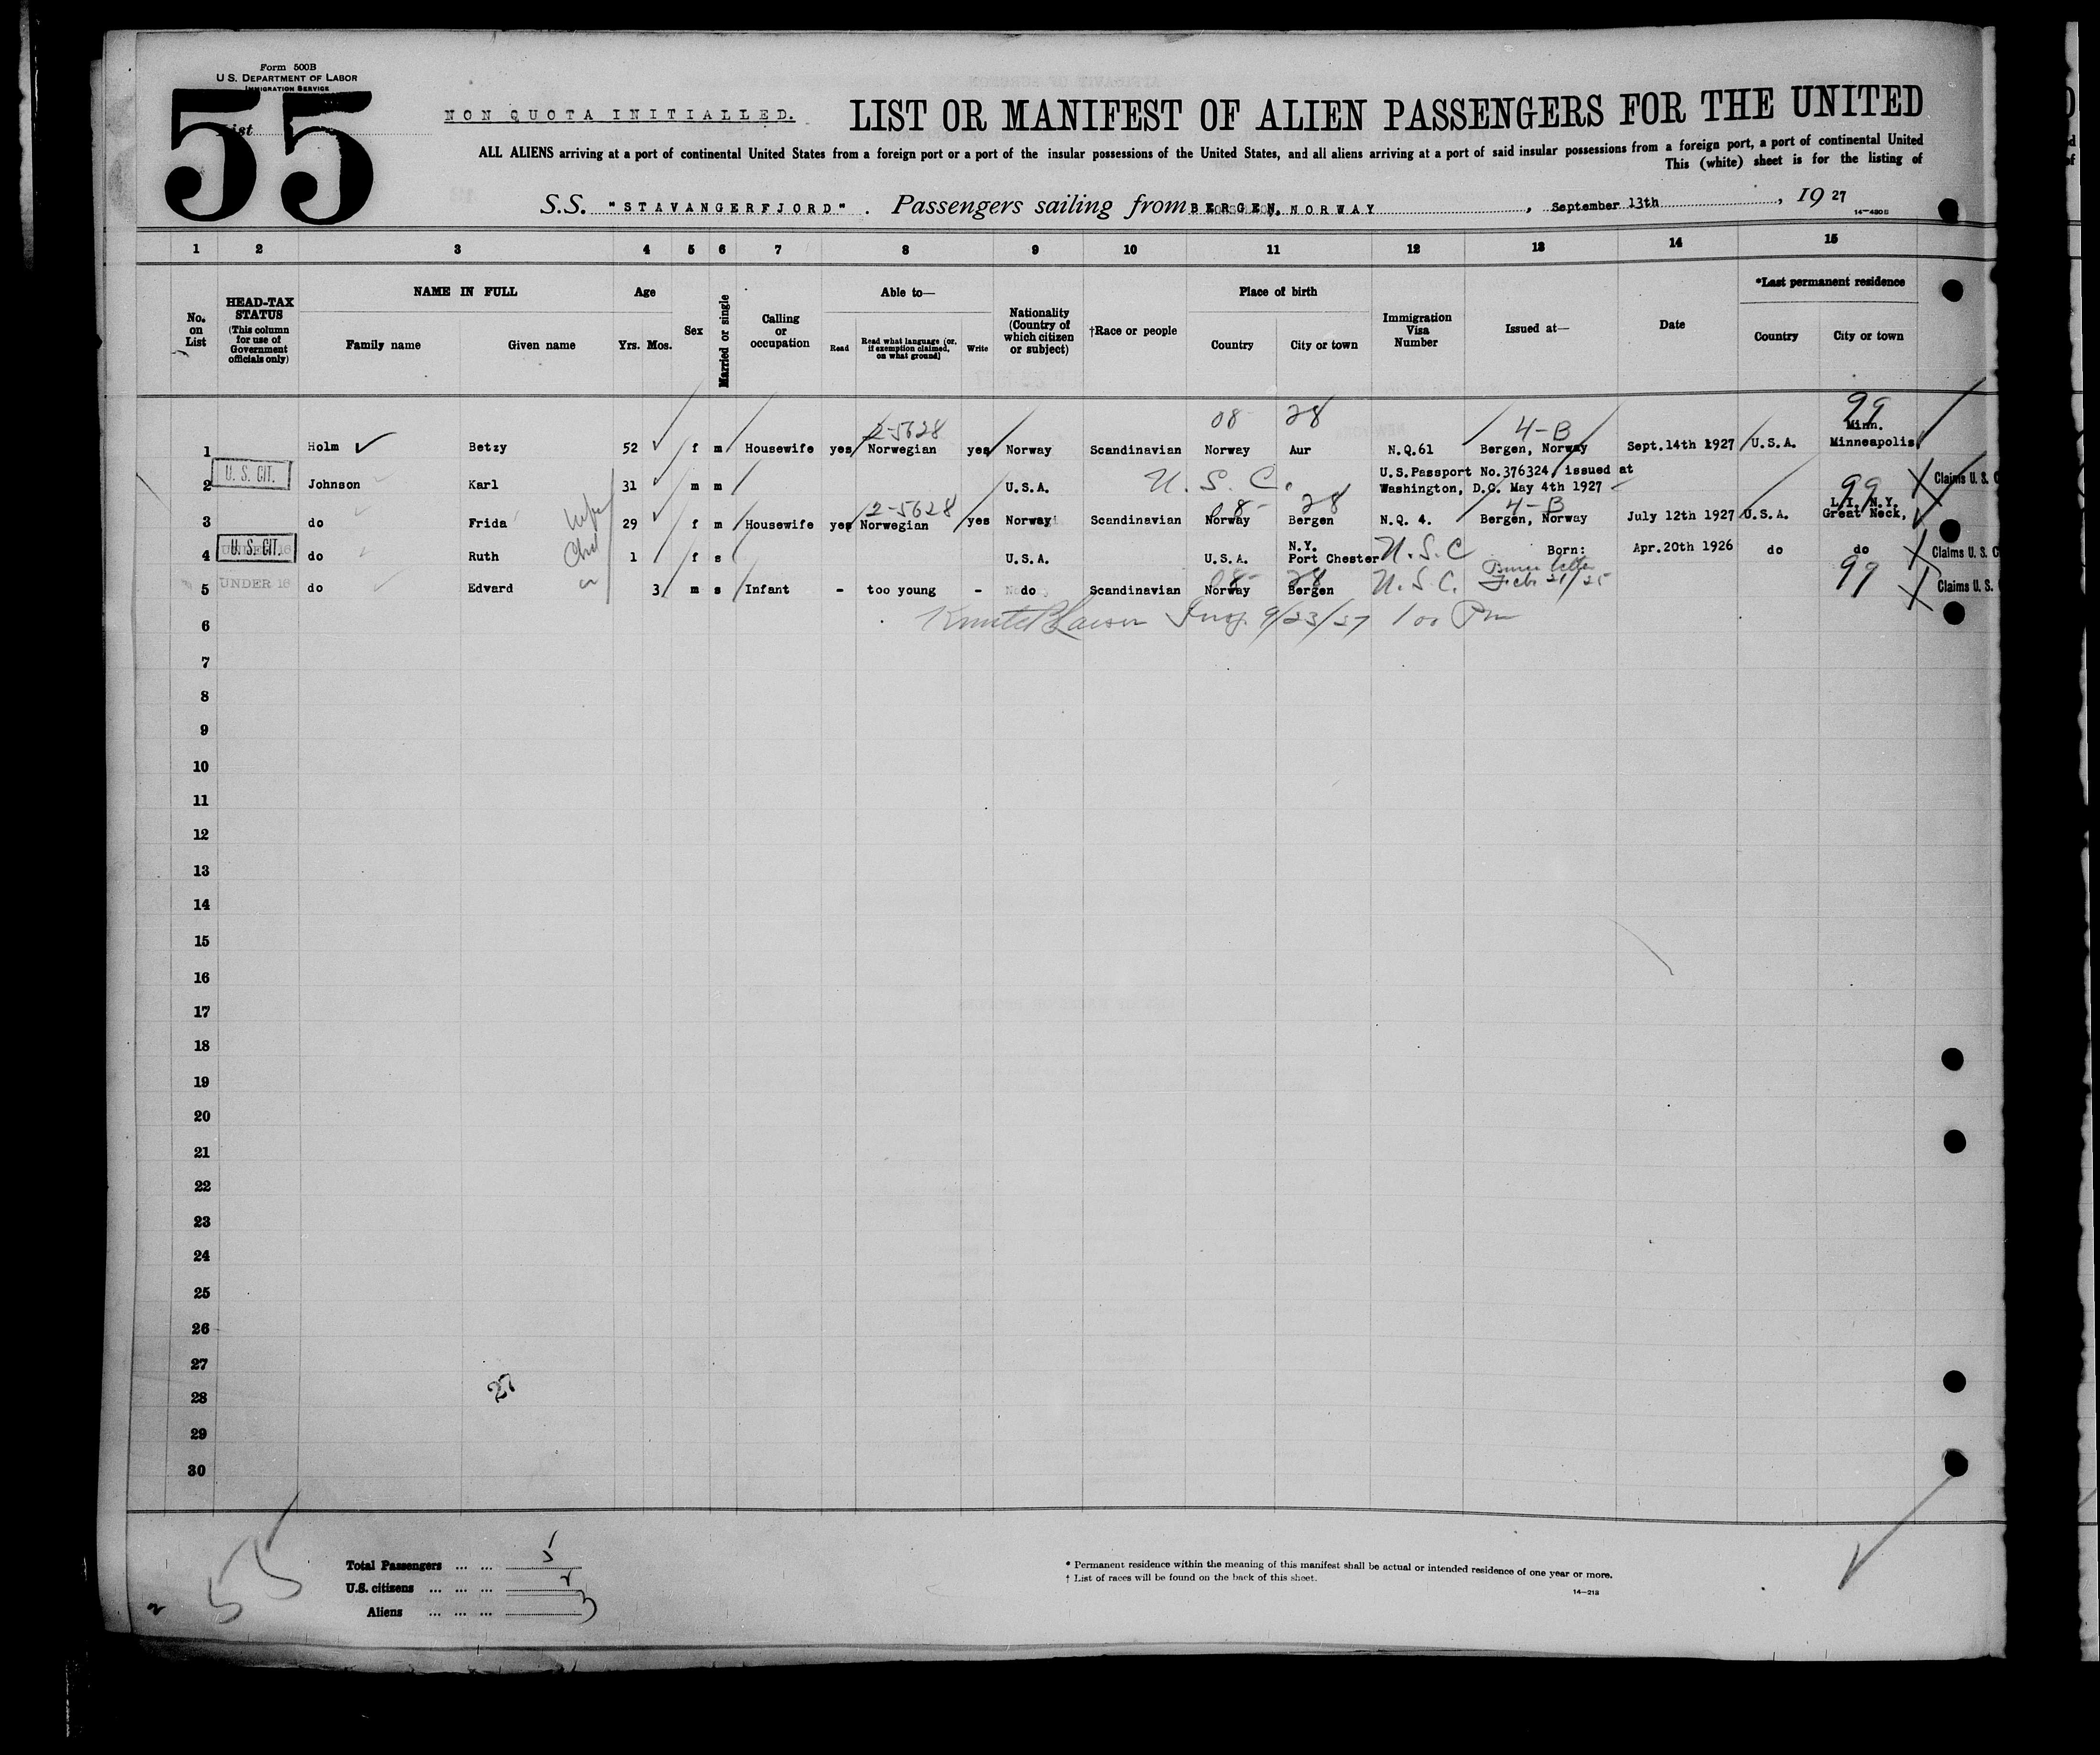 Form 500B
U. S. DEPARTMENT OF LABOR
IMMIGRATION SERVICE
55
List
NON QUOTA INITIALLED.
LIST OR MANIFEST OF ALIEN PASSENGERS FOR THE UNITED
ALL ALIENS arriving at a port of continental United States from a foreign port or a port of the insular possessions of the United States, and all aliens arriving at a port of said insular possessions from a foreign port, a port of continental United
This (white) sheet is for the listing of
S.S. "STAVANGERFJORD". Passengers sailing from BERGEN, NORWAY, September 13th, 19 27
14—430 B
1 2 3 4 5 6 7 8 9 10 11 12 13 14 15
No. on List
HEAD-TAX STATUS
(This column for use of Government officials only)
NAME IN FULL
Family name Given name
Age
Yrs. Mos.
Sex
Married or single
Calling or occupation
Able to—
Read
Read what language [or, if exemption claimed, on what ground]
Write
Nationality (Country of which citizen or subject)
†Race or people
Place of birth
Country City or town
Immigration Visa Number
Issued at—
Date
*Last permanent residence
Country City or town
2-5628 08- 28 4-B 99
Minn.
1 Holm Betzy 52 f m Housewife yes Norwegian yes Norway Scandinavian Norway Aur N.Q.61 Bergen, Norway Sept.14th 1927 U.S.A. Minneapolis
U. S. CIT.
U.S.Passport No.376324, issued at
2 Johnson Karl 31 m m U.S.A. U. S. C. Washington, D.C. May 4th 1927 99 Claims U. S. C
2-5628 08- 28 4-B
L.I. N.Y.
3 do Frida 29 f m Housewife yes Norwegian yes Norway Scandinavian Norway Bergen N.Q. 4. Bergen, Norway July 12th 1927 U.S.A. Great Neck,
U. S. CIT.
N.Y.
4 do Ruth 1 f s U.S.A. U.S.A. Port Chester U.S.C Born: Apr.20th 1926 do do Claims U. S. C
UNDER 16
08- 28 99
5 do Edvard 3 m s Infant - too young - do Scandinavian Norway Bergen U.S.C. Feb 21/25 Claims U. S.
6 9/23/27 1 00 Pm
7
8
9
10
11
12
13
14
15
16
17
18
19
20
21
22
23
24
25
26
27
27
28
29
30
55
Total Passengers ... ... 5
U.S. citizens ... ... ... 2
Aliens ... ... ... 3
* Permanent residence within the meaning of this manifest shall be actual or intended residence of one year or more.
† List of races will be found on the back of this sheet.
14—213
2